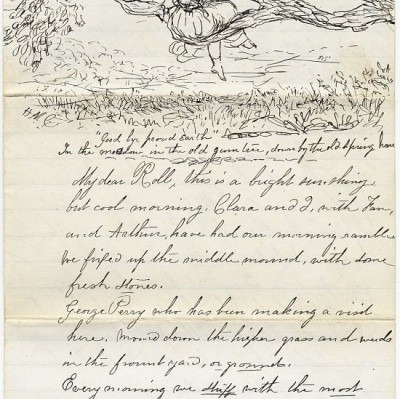 "Good bye proud earth"
In the meadow in the old gum tree, down by the old spring house
My dear Roll, this is a bright sunshing,
but cool morning. Clara and I, with Fan,
and Arthur, have had our morning ramble
We fixed up the middle mound, with some
fresh stones.
George Perry who has been making a visit
here. Mowed down the higher grass and weeds
in the frount yard, or grounds.
Every morning we stuff with the most